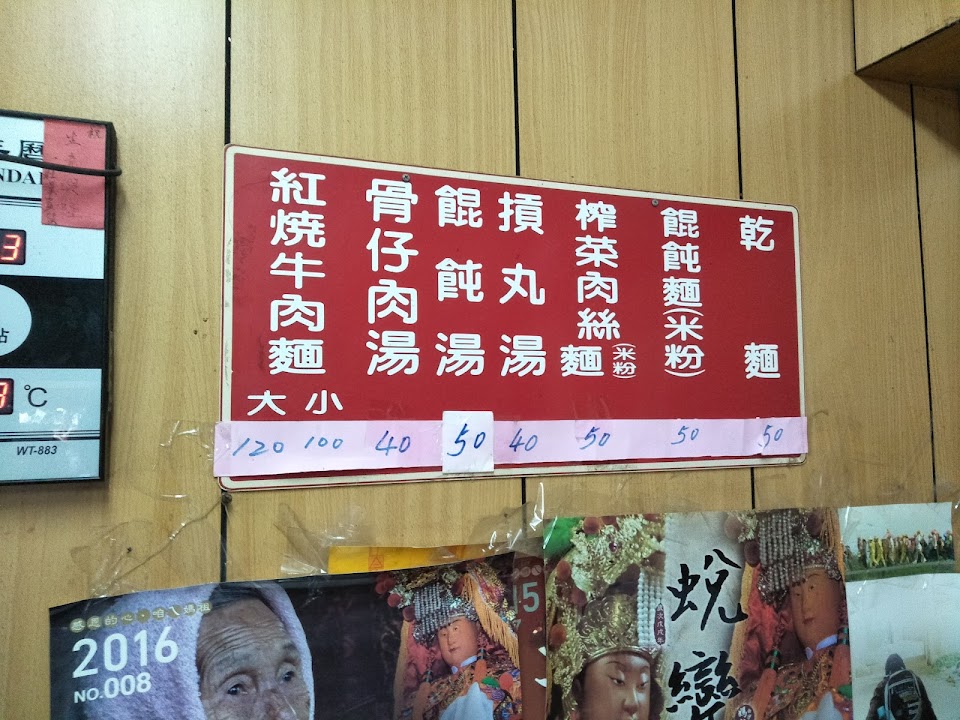 乾麵
餛飩麵(米粉)
榨菜肉絲麵(米粉)
摃丸湯
餛飩湯
骨仔肉湯
紅燒牛肉麵
大 小
120 100 40 50 40 50 50 50
3
℃
WT-883
感恩的心·咱ㄟ媽祖
2016
NO.008
15
蛻變